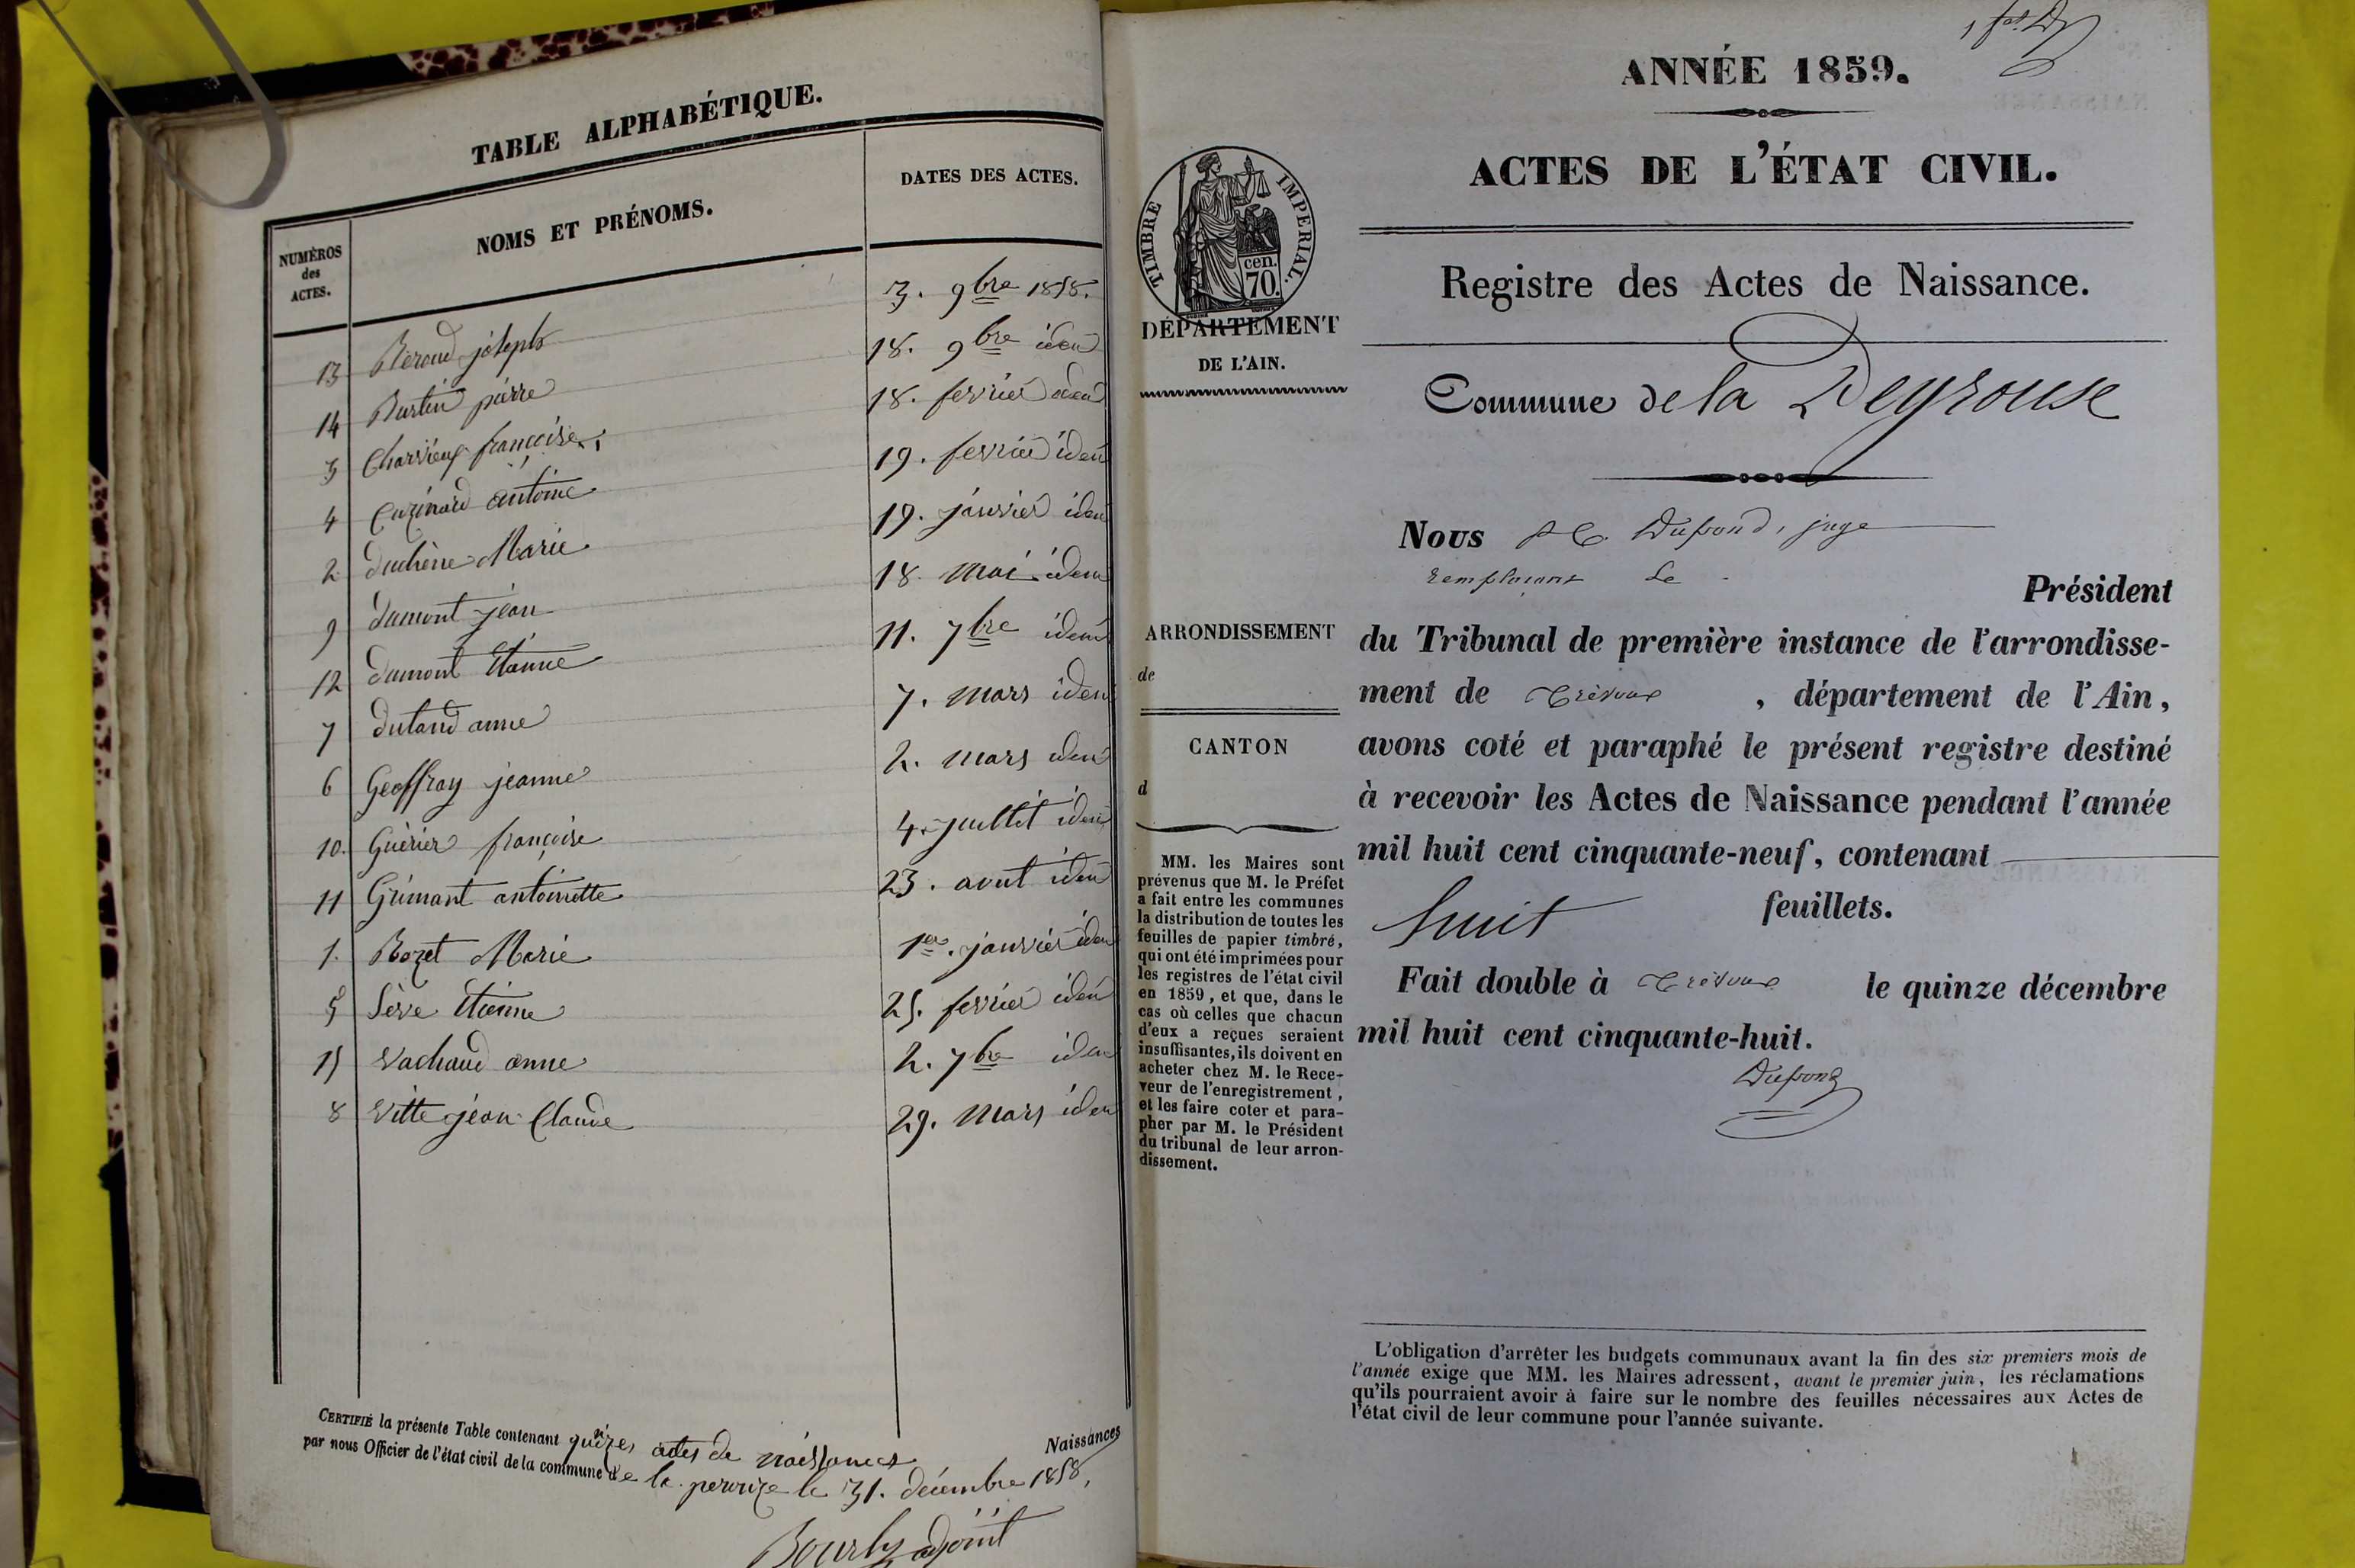 TABLE ALPHABÉTIQUE.
NUMÉROS des ACTES. NOMS ET PRÉNOMS. DATES DES ACTES.
13 Beroud joseph 3. 9bre 1858.
14 Burtin pierre 18. 9bre idem
3 Charrieux françoise 18. fevrier idem
4 Cuzinard antoine 19. fevrier idem
2 duchêne Marie 19. janvier idem
9 dumont jean 18. mai idem
12 dumont Etienne 11. 7bre idem
7 dutand anne 7. mars idem
6 Geoffray jeanne 2. mars idem
10. Guérier françoise 4. juillet idem
11 Grimant antoinette 23. aout idem
1. Rozet Marie 1er. janvier idem
5 Sève Etienne 25. fevrier idem
15 Vachaud anne 2. 7bre idem
8 Vitte jean Claude 29. Mars idem
CERTIFIÉ la présente Table contenant quinze actes de naissances Naissances
par nous Officier de l'état civil de la commune de la perouze le 31. décembre 1858,
adjoint
ANNÉE 1859.
ACTES DE L'ÉTAT CIVIL.
TIMBRE IMPERIAL.
cen.
70.
DÉPARTEMENT
DE L'AIN.
Registre des Actes de Naissance.
Commune de la Peyrouse
ARRONDISSEMENT
de
CANTON
d
MM. les Maires sont
prévenus que M. le Préfet
a fait entre les communes
la distribution de toutes les
feuilles de papier timbré,
qui ont été imprimées pour
les registres de l'état civil
en 1859, et que, dans le
cas où celles que chacun
d'eux a reçues seraient
insuffisantes, ils doivent en
acheter chez M. le Rece-
veur de l'enregistrement,
et les faire coter et para-
pher par M. le Président
du tribunal de leur arron-
dissement.
Nous Dupond, juge
remplaçant le
Président
du Tribunal de première instance de l'arrondisse-
ment de Trévoux, département de l'Ain,
avons coté et paraphé le présent registre destiné
à recevoir les Actes de Naissance pendant l'année
mil huit cent cinquante-neuf, contenant
huit feuillets.
Fait double à Trévoux le quinze décembre
mil huit cent cinquante-huit.
Dupond
L'obligation d'arrêter les budgets communaux avant la fin des six premiers mois de
l'année exige que MM. les Maires adressent, avant le premier juin, les réclamations
qu'ils pourraient avoir à faire sur le nombre des feuilles nécessaires aux Actes de
l'état civil de leur commune pour l'année suivante.